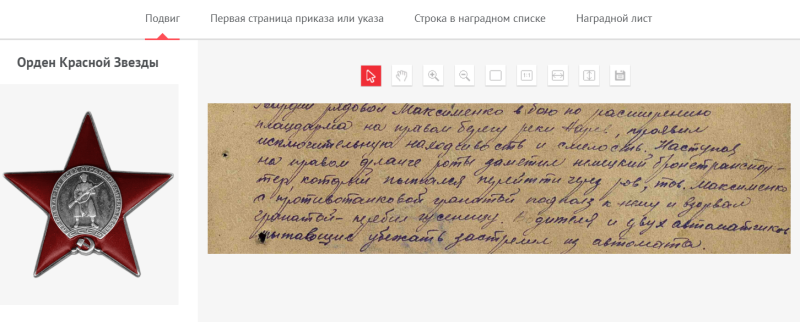 Подвиг
Первая страница приказа или указа
Строка в наградном списке
Наградной лист
Орден Красной Звезды
Гвардии рядовой Максименко в бою по расширению
плацдарма на правом берегу реки Нарев, проявил
исключительную находчивость и смелость. Наступая
на правом фланге роты заметил немецкий бронетранспор-
тер, который пытался перейти через ров, тов. Максименко
с противотанковой гранатой подполз к нему и взорвал
гранатой - перебил гусеницу. Водителя и двух автоматчиков
пытающие убежать застрелил из автомата.